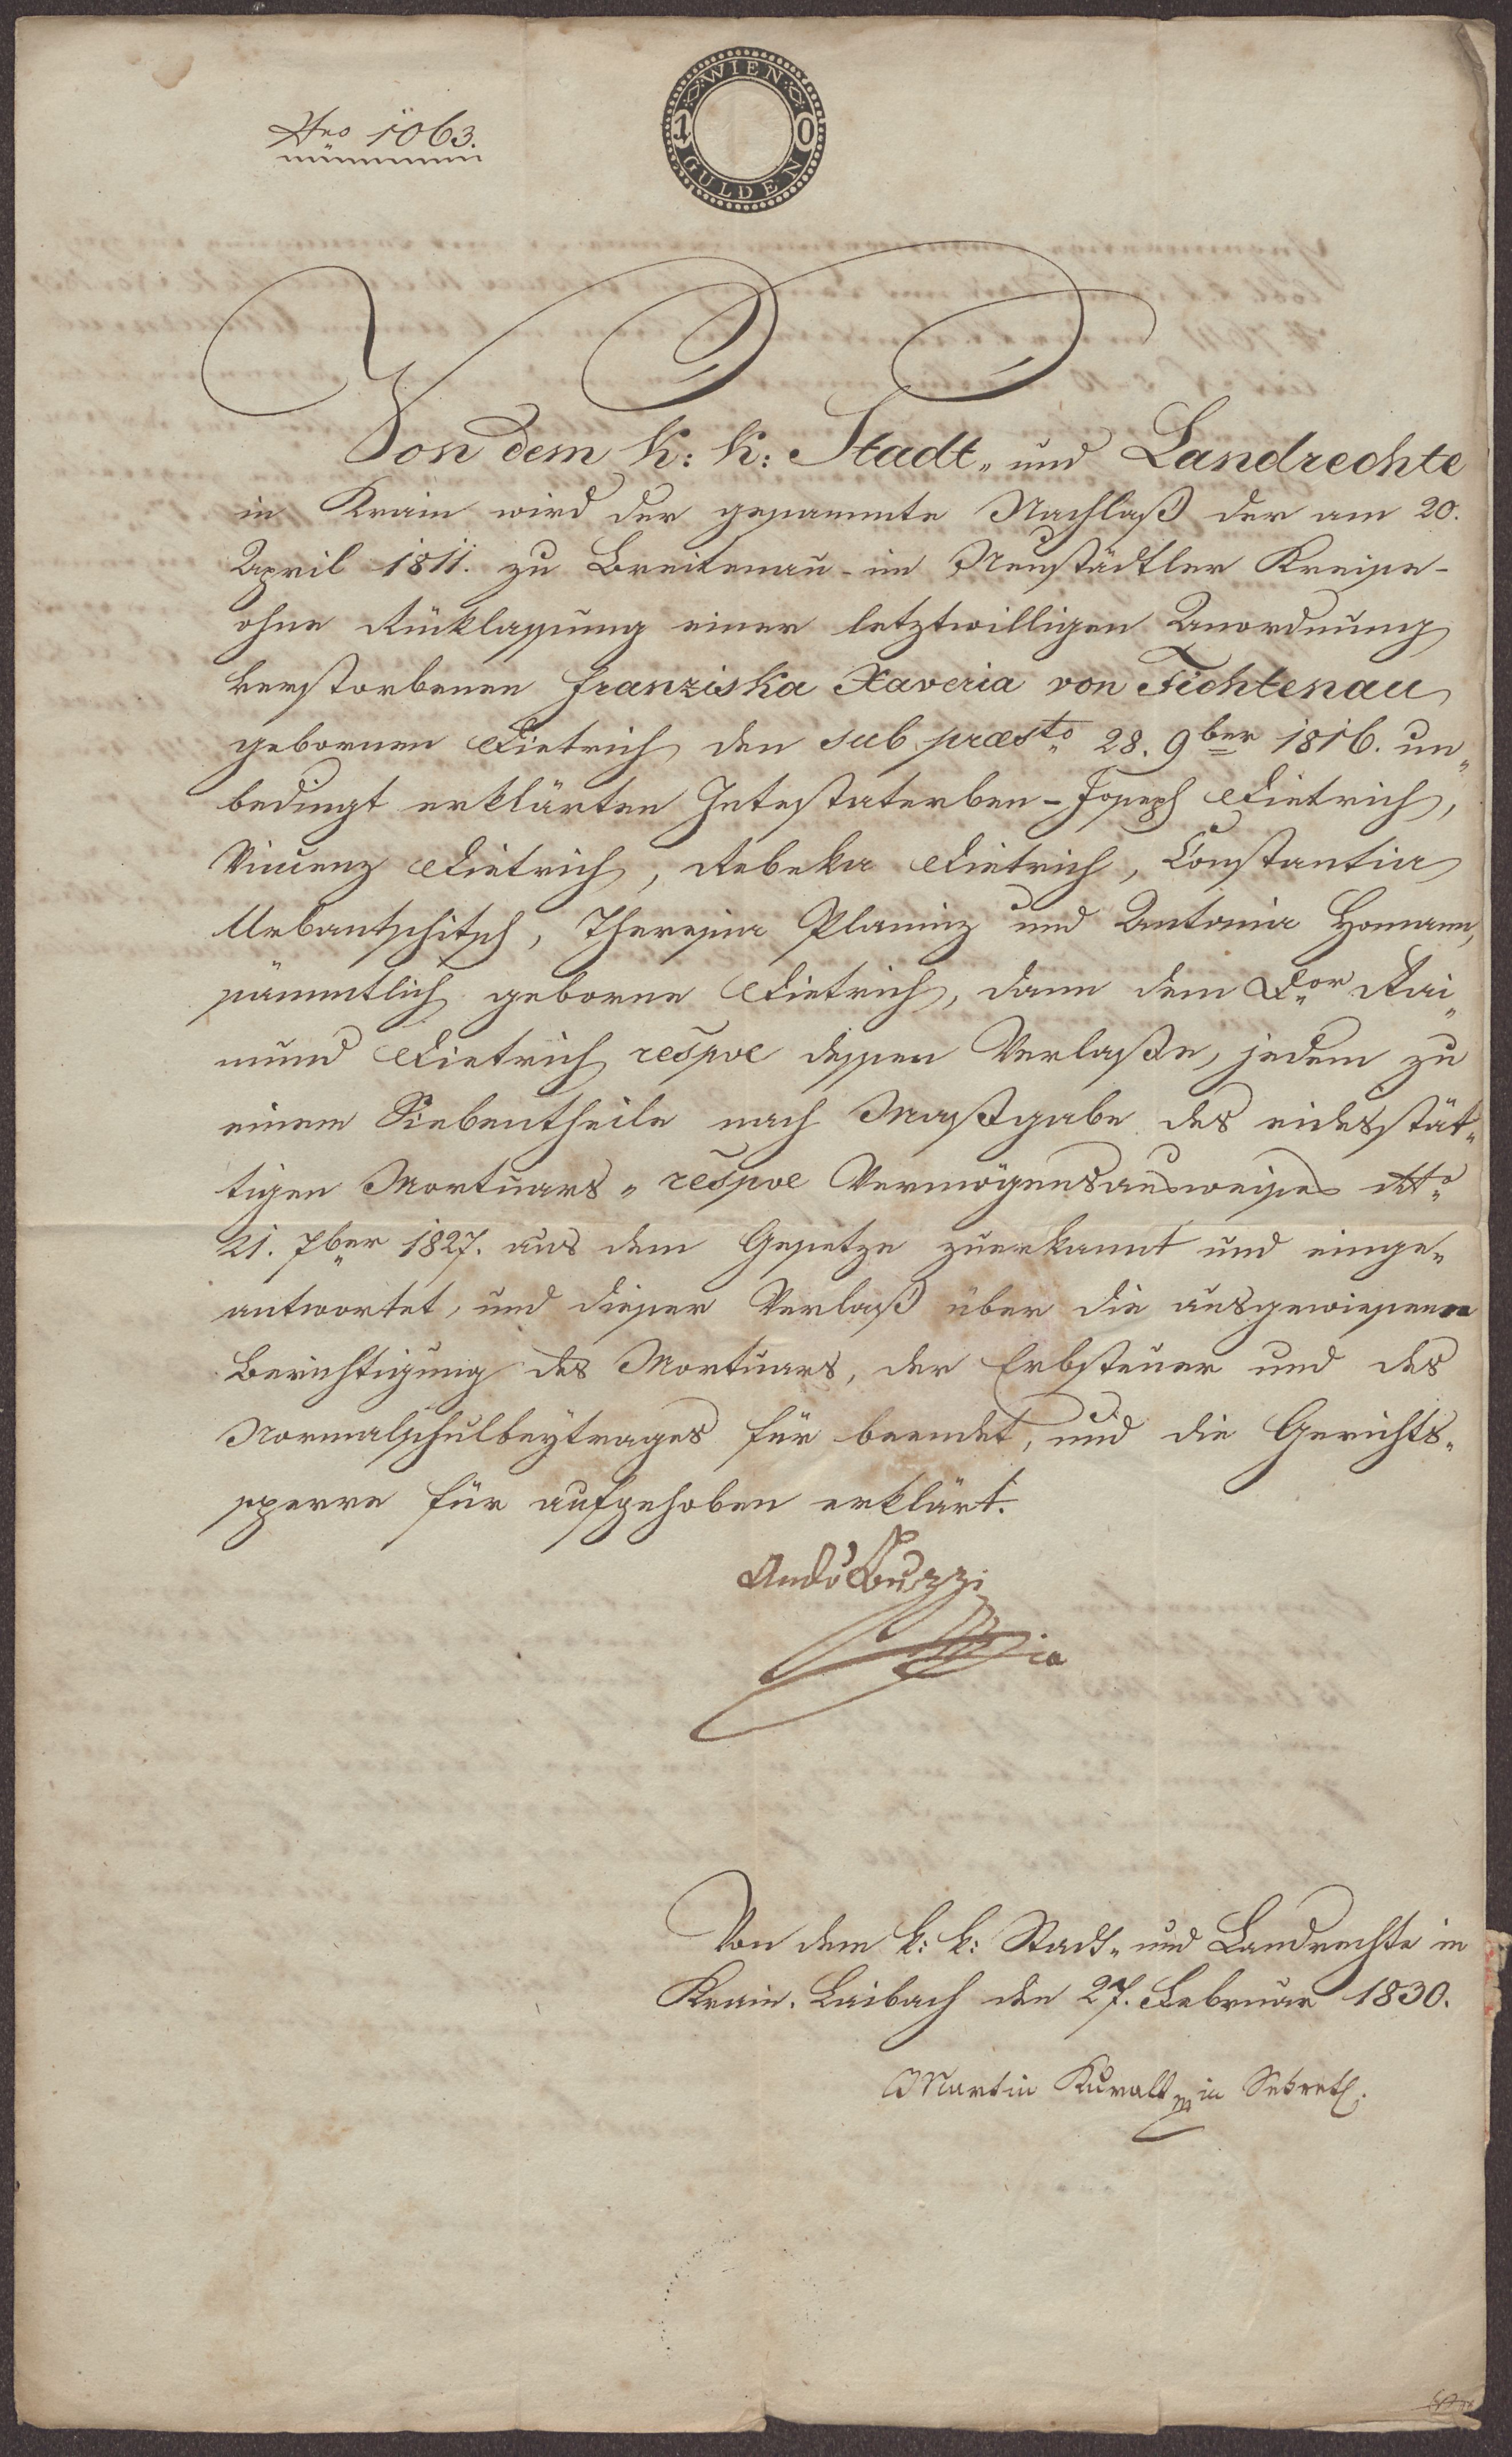 Nro 1063.
WIEN
10
GULDEN
Von dem K: K: Stadt„ und Landrechte
in Krain wird der gesammte Nachlaß der am 20.
April 1811. zu Breitenau - im Neustädtler Kreise -
ohne Rüklassung einer letztwilligen Anordnung
verstorbenen Franziska Xaveria von Fichtenau
gebornen Dietrich, den sub præsto 28. 9ber 1816. un„
bedingt erklärten Intestaterben - Joseph Dietrich,
Vincenz Dietrich, Rebeka Dietrich, Constantia
Urbantschitsch, Theresia Planinz und Antonia Homann,
sämmtlich geborne Dietrich, dann dem Dor Rai„
mund Dietrich respve dessen Verlaße, jedem zu
einem Siebentheile nach Maßgabe des eidesstät„
tigen Mortuars„ respve Vermögensausweises dtto
21. 7ber 1827. aus dem Gesetze zuerkannt und einge„
antwortet, und dieser Verlaß über die ausgewiesene
Berichtigung des Mortuars, der Erbsteuer und des
Normalschulbeytrages für beendet, und die Gerichts„
sperre für aufgehoben erklärt.
Buzzi
Von dem k: k: Stadt„ und Landrechte in
Krain. Laibach den 27. Februar 1830.
Martin Kuralt